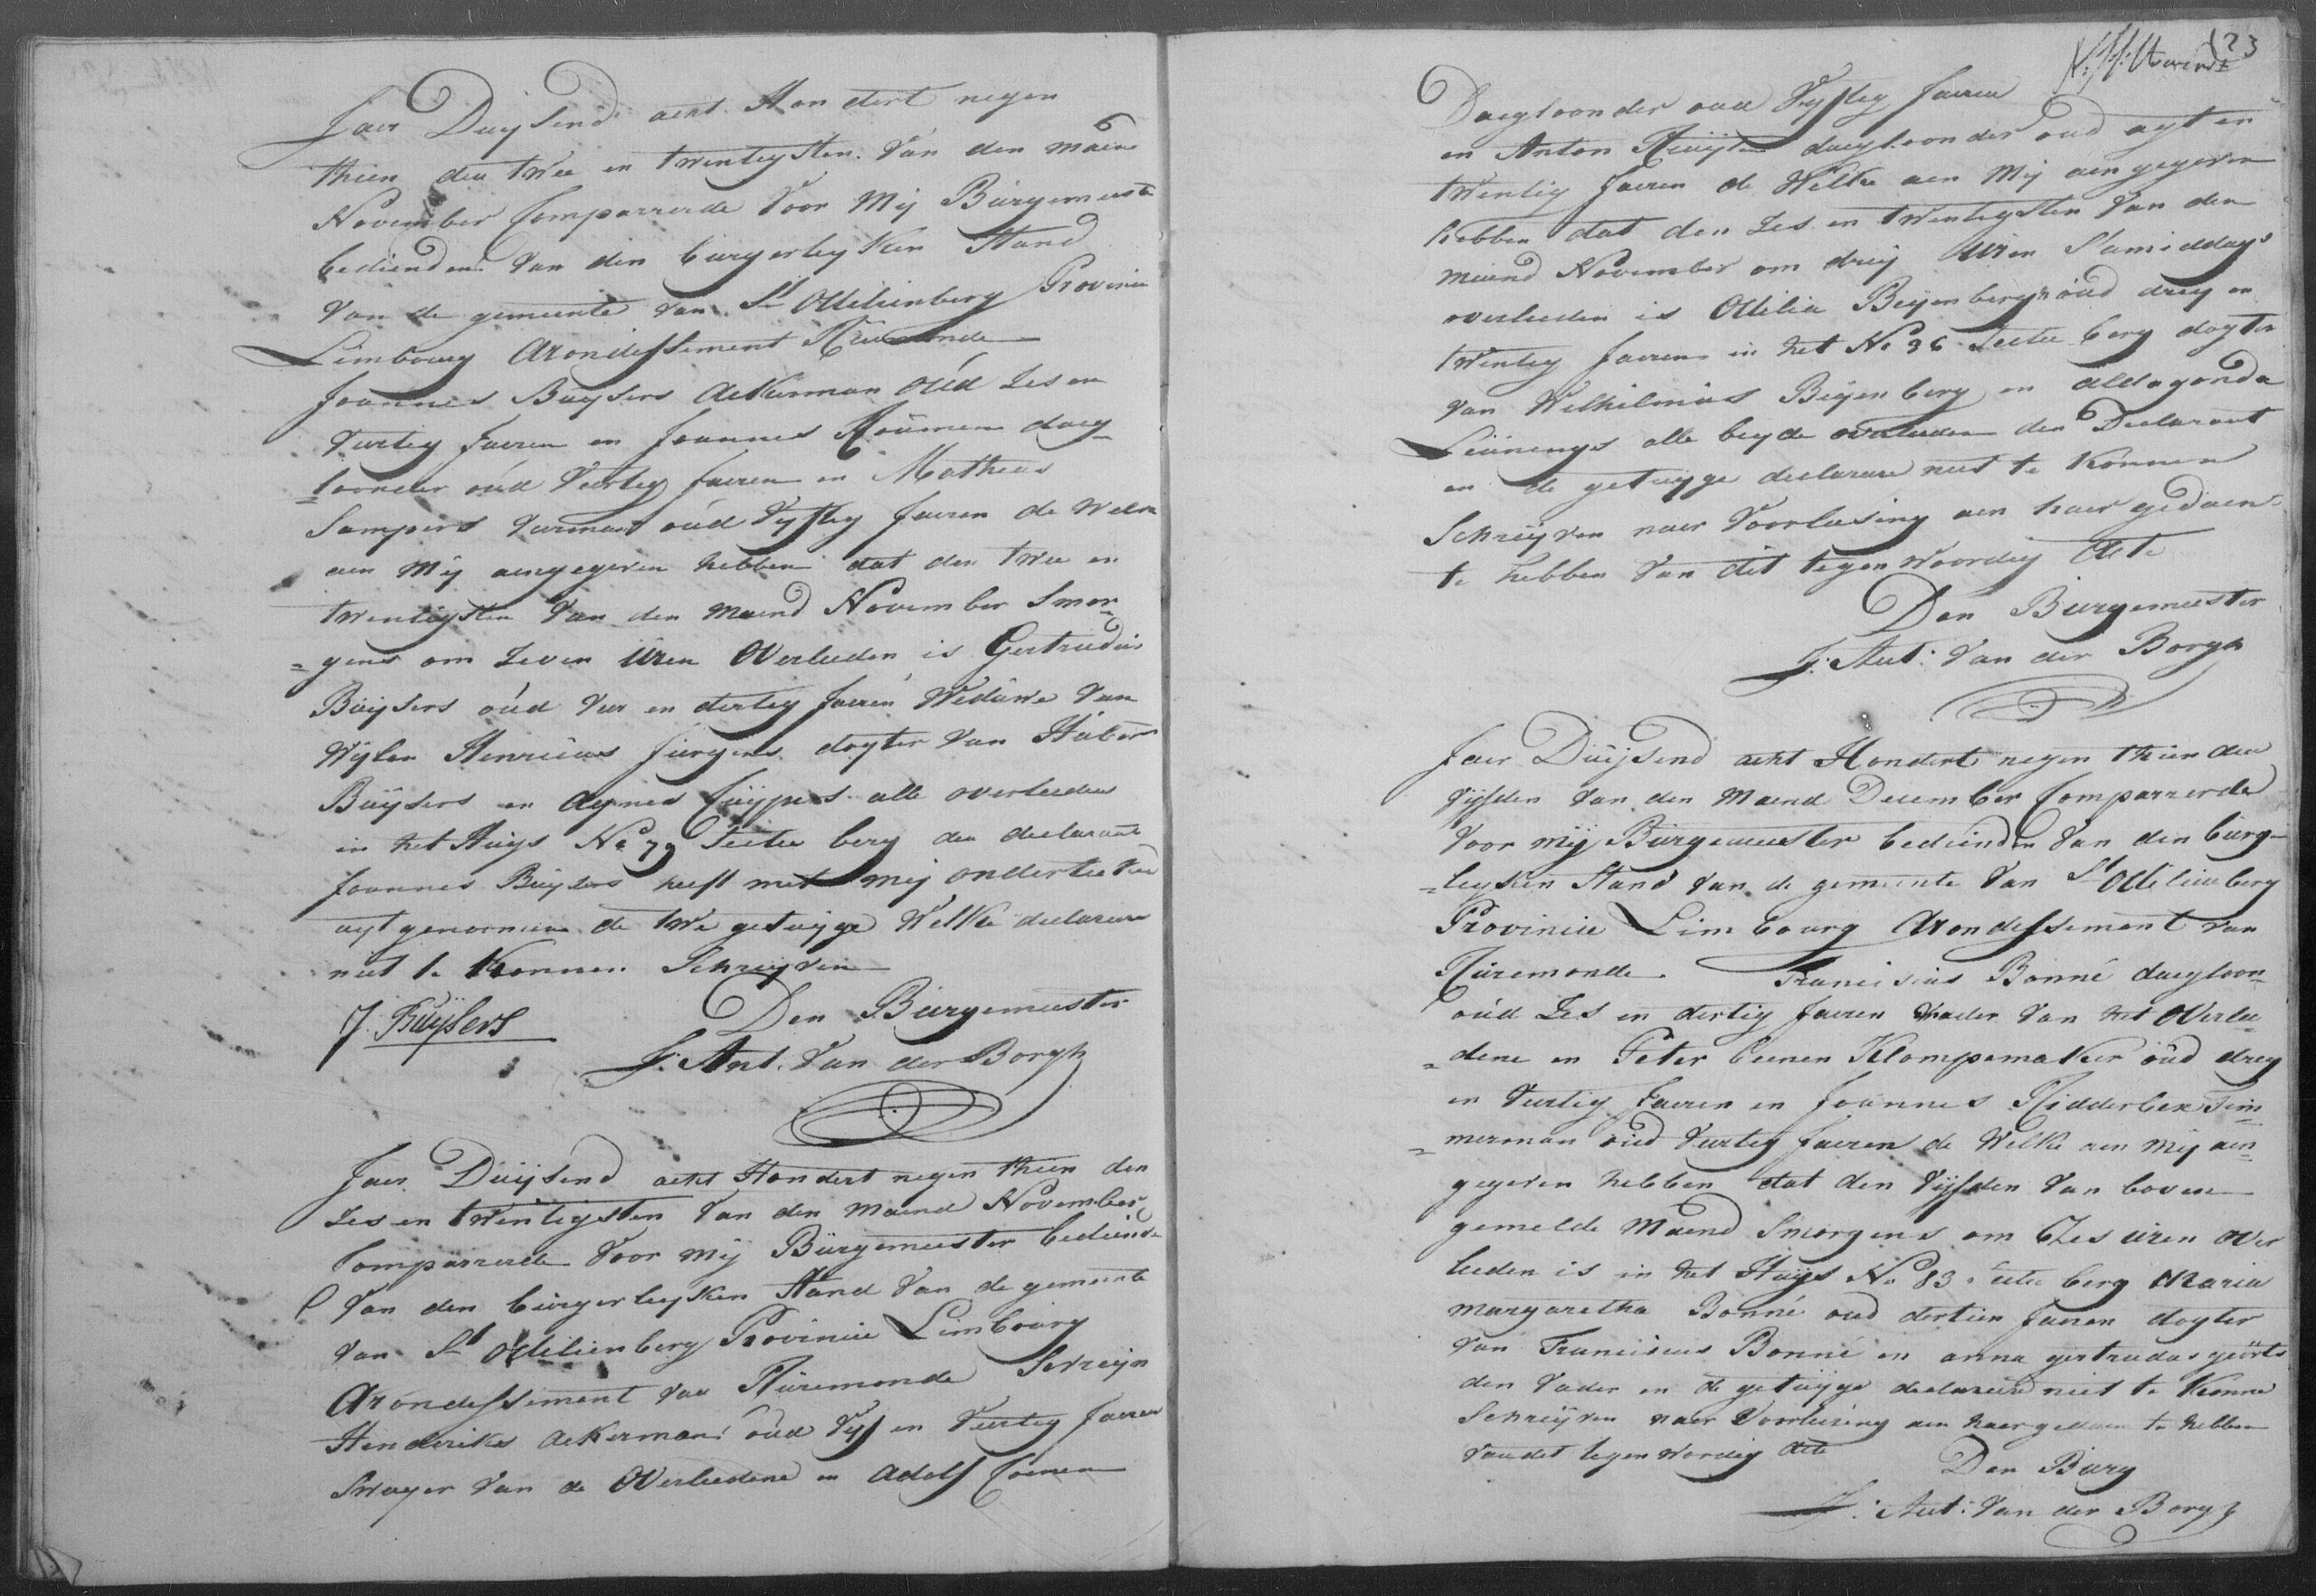 Jaer Duijsend acht Hondert negen
thien den twee en twentigsten Van den maend
November Comparrerde Voor Mij Burgemeester
bediendend Van den burgerleyken Stand
Van de gemeente Van St Odilienberg Provincie
Limbourg Arondissement Ruremonde
Joannes Buysers Ackerman oud Ses en
Veertig Jaeren en Joannes Roumen daeg
=looner oud Veertig Jaeren en Matheus
Sampers Varman oud Vyftig Jaeren de Welke
aen Mij aengegeven hebben dat den twee en
twentigsten Van den Maend November Smor
=gens om Zeven uren Overleeden is Gertrudis
Buijsers oud Veer en dertig Jaeren Weduwe Van
Wylen Henricus Jurgens dogter Van Hubert
Buijsers en Agnes Cuypers alle overleeden
in het Huys No 79 Sectie berg den declarant
Joannes Buysers heeft met mij onderteekend
uytgenoomen de twe getuyge Welke declareeren
niet te Konnen Schryven
Den Burgemeester
J. Buÿsers
J: Ant: Van der Borgh
Jaer Duijsend acht Hondert negen thien den
Zes en twintigsten Van den Maend November
Comparrerde Voor Mij Burgemeester bediende
Van den burgerleyken Stand Van de gemeente
Van St Odilienberg Provincie Limbourg
Arondissement Van Ruremonde Serveijn
Henderiks Ackerman oud Vyf en Veertig Jaeren
Swager Van de Overleedene en Adolf Coenen
123
Daegloonder oud Vyftig Jaeren
en Anton daegloonder oud agt en
twentig Jaeren de Welke aen Mij aengegeven
hebben dat den Zes en twentigsten Van den
maend November om dreij uren S'amiddags
overleeden is Odilia Beijenbergh oud dreij en
twentig Jaeren in het No 36 Sectie berg dogter
van Welhelmus Beyenberg en aldegonda
alle beyde overleeden den Declarant
en de getuyge declareren niet te Konnen
Schrijven naer Voorleesing aen haer gedaen
te hebben Van dit tegenwoordig Acte
Den Burgemeester
J: Ant: Van der Borgh
Jaer Duijsend acht Hondert negen thien den
Vyfden Van den Maend December Comparrerde
Voor Mij Burgemeester bedienden Van den burger
=leyken Stand Van de gemeente Van St Odilienberg
Provincie Limbourg Arondissement Van
Ruremonde. Franciscus Bonné daegloon
oud Zes en dertig Jaeren Vaeder Van het Overlee
=dene en Peter Ceenen Klompemaker oud dreij
en Veertig Jaeren en Joannes Ridderbex Tim
=merman oud Veertig Jaeren de Welke aen Mij aen
gegeven hebben dat den Vyfden Van boven
gemelde Maend Smorgens om Zes uren over
leeden is in het Huys No 83 Sectie berg Maria
Margaretha Bonné oud dertien Jaeren dogter
Van Franciscus Bonné en anna gertrudas geörts
den Vader en de getuyge declarere niet te Konne
Schrijven naer Voorleesing aen haer gedaen te hebben
Van det tegenwordig Acte
Den Burg
J: Ant: Van der Borgh